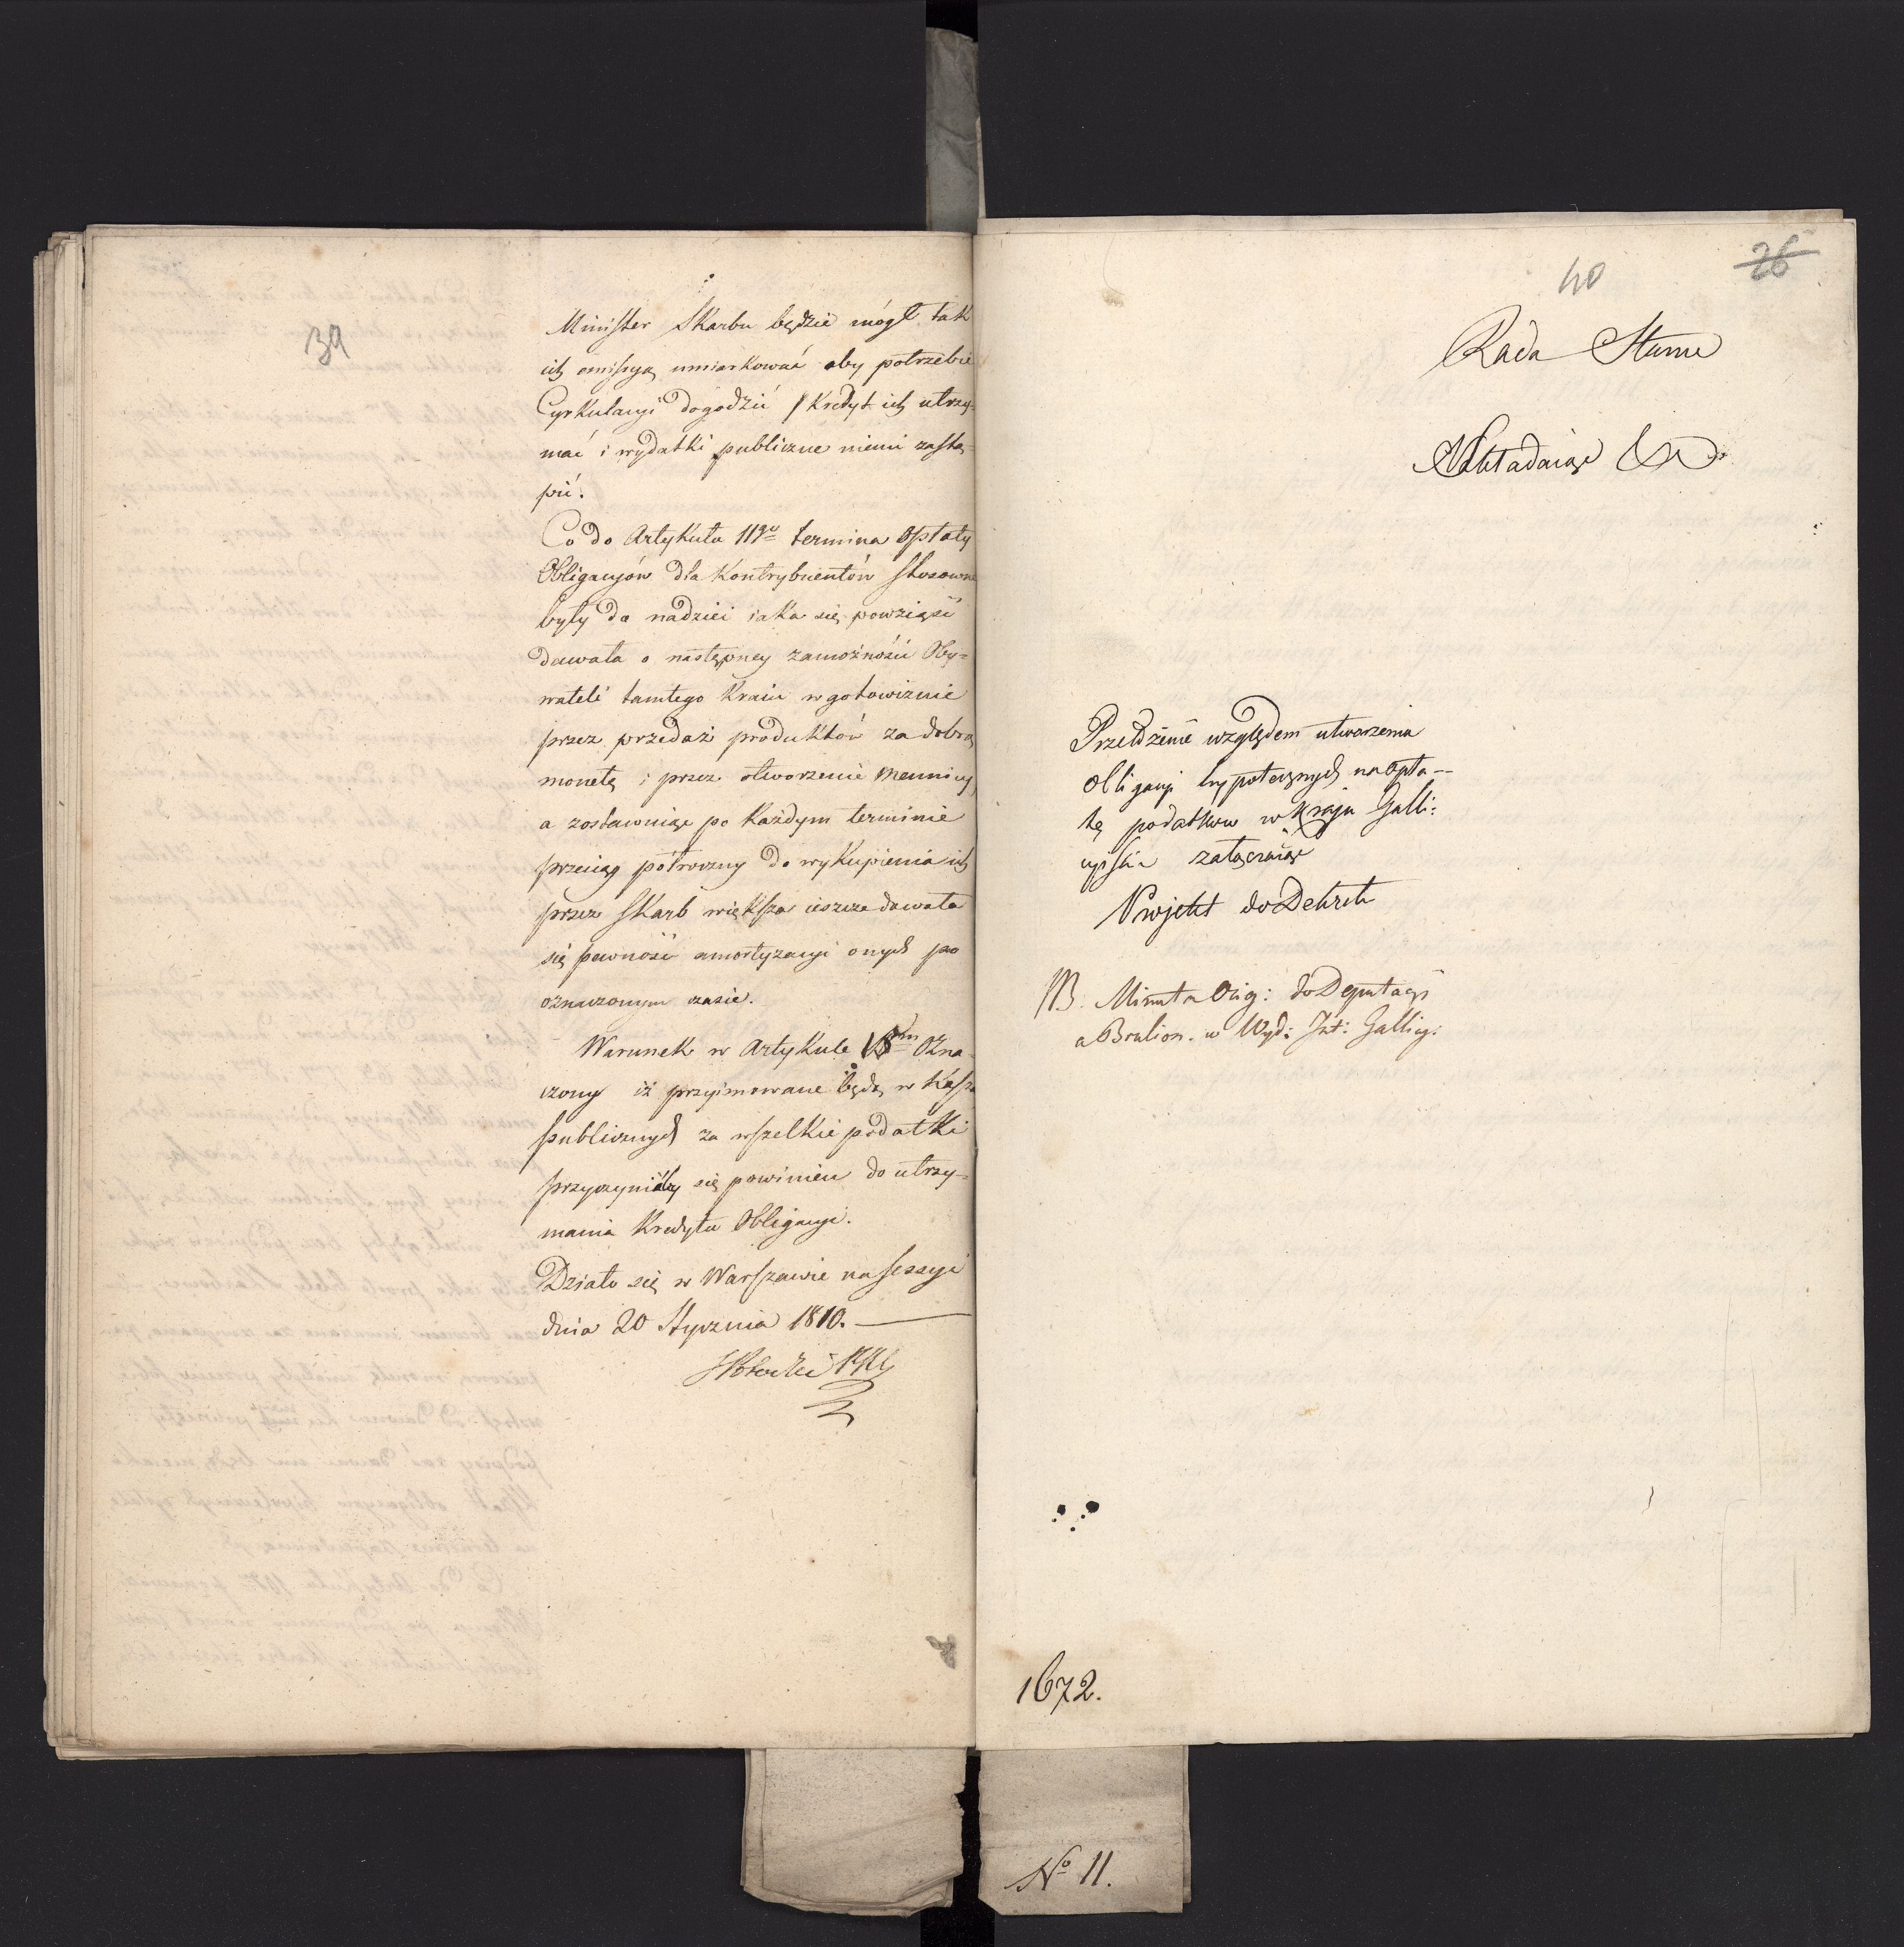 39
Minister Skarbu będzie mógł tak
ich emissyą umiarkować aby potrzebie
Cyrkulacyi dogodzić, Kredyt ich utrzy-
mać i wydatki publiczne niemi zastą-
pić.
Co do Artykułu 11go termina Opłaty
Obligacyów dla Kontrybuentów stosowne
były do nadziei iaka się powziąść
dawała o następney zamożności Oby=
wateli tamtego Kraiu w gotowiznie
przez przedaż produktów za dobrą
monetę i przez otworzenie Mennicy,
a zostawuiąc po każdym terminie
przeciąg półroczny do wykupienia ich
przez Skarb większa ieszcze dawała
się pewność amortyzacyi onych po
oznaczonym czasie.
Warunek w Artykule Ozna-
czony iż przyimowane będą w Kassach
publicznych za wszelkie podatki
przyczyniáłby się powinien do utrzy-
mania Kredytu Obligacyi.
Działo się w Warszawie na Sessyi
dnia 20 Stycznia 1810.
40
26
Rada Stanu
Układaiąc
względem utworzenia
obligacyi hypotecznych na opła-
tę podatków w kraju Galli:
cyiskim załączaiąc
Projekt do Dekretu
NB. Minuta Orig: do Deputacyi
a Brulion. w Wyd: Int: Gallicy:
1672.
No 11.